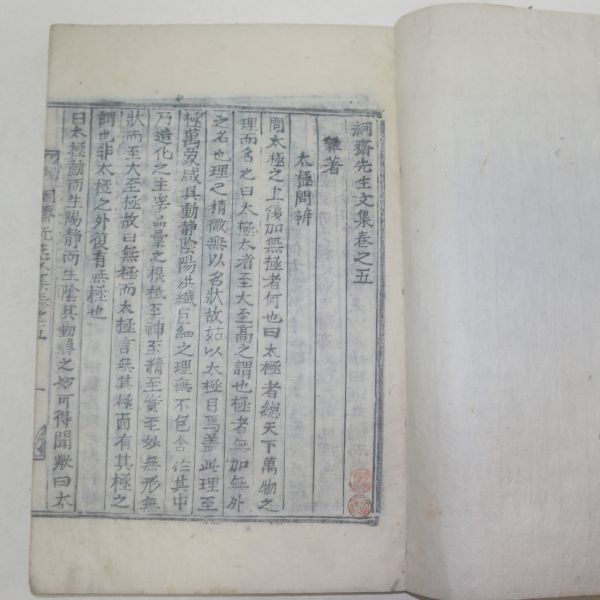 絅齋先生文集卷之五
雜著
太極問辨
問太極之上復加無極者何也曰太極者總天下萬物之
理而名之曰太極太者至大至高之謂也極者無加無外
之名也理之精微無以名狀故姑以太極目焉盖此理至
極萬象咸具動靜陰陽洪纖巨細之理無不包含於其中
乃造化之主宰品彙之根柢至神至精至實至妙無形無
狀而至大至極故曰無極而太極言無其極而有其極之
謂也非太極之外復有無極也
曰太極動而生陽靜而生陰其動靜之妙可得聞歟曰太
絅齋先生文集卷之五 一